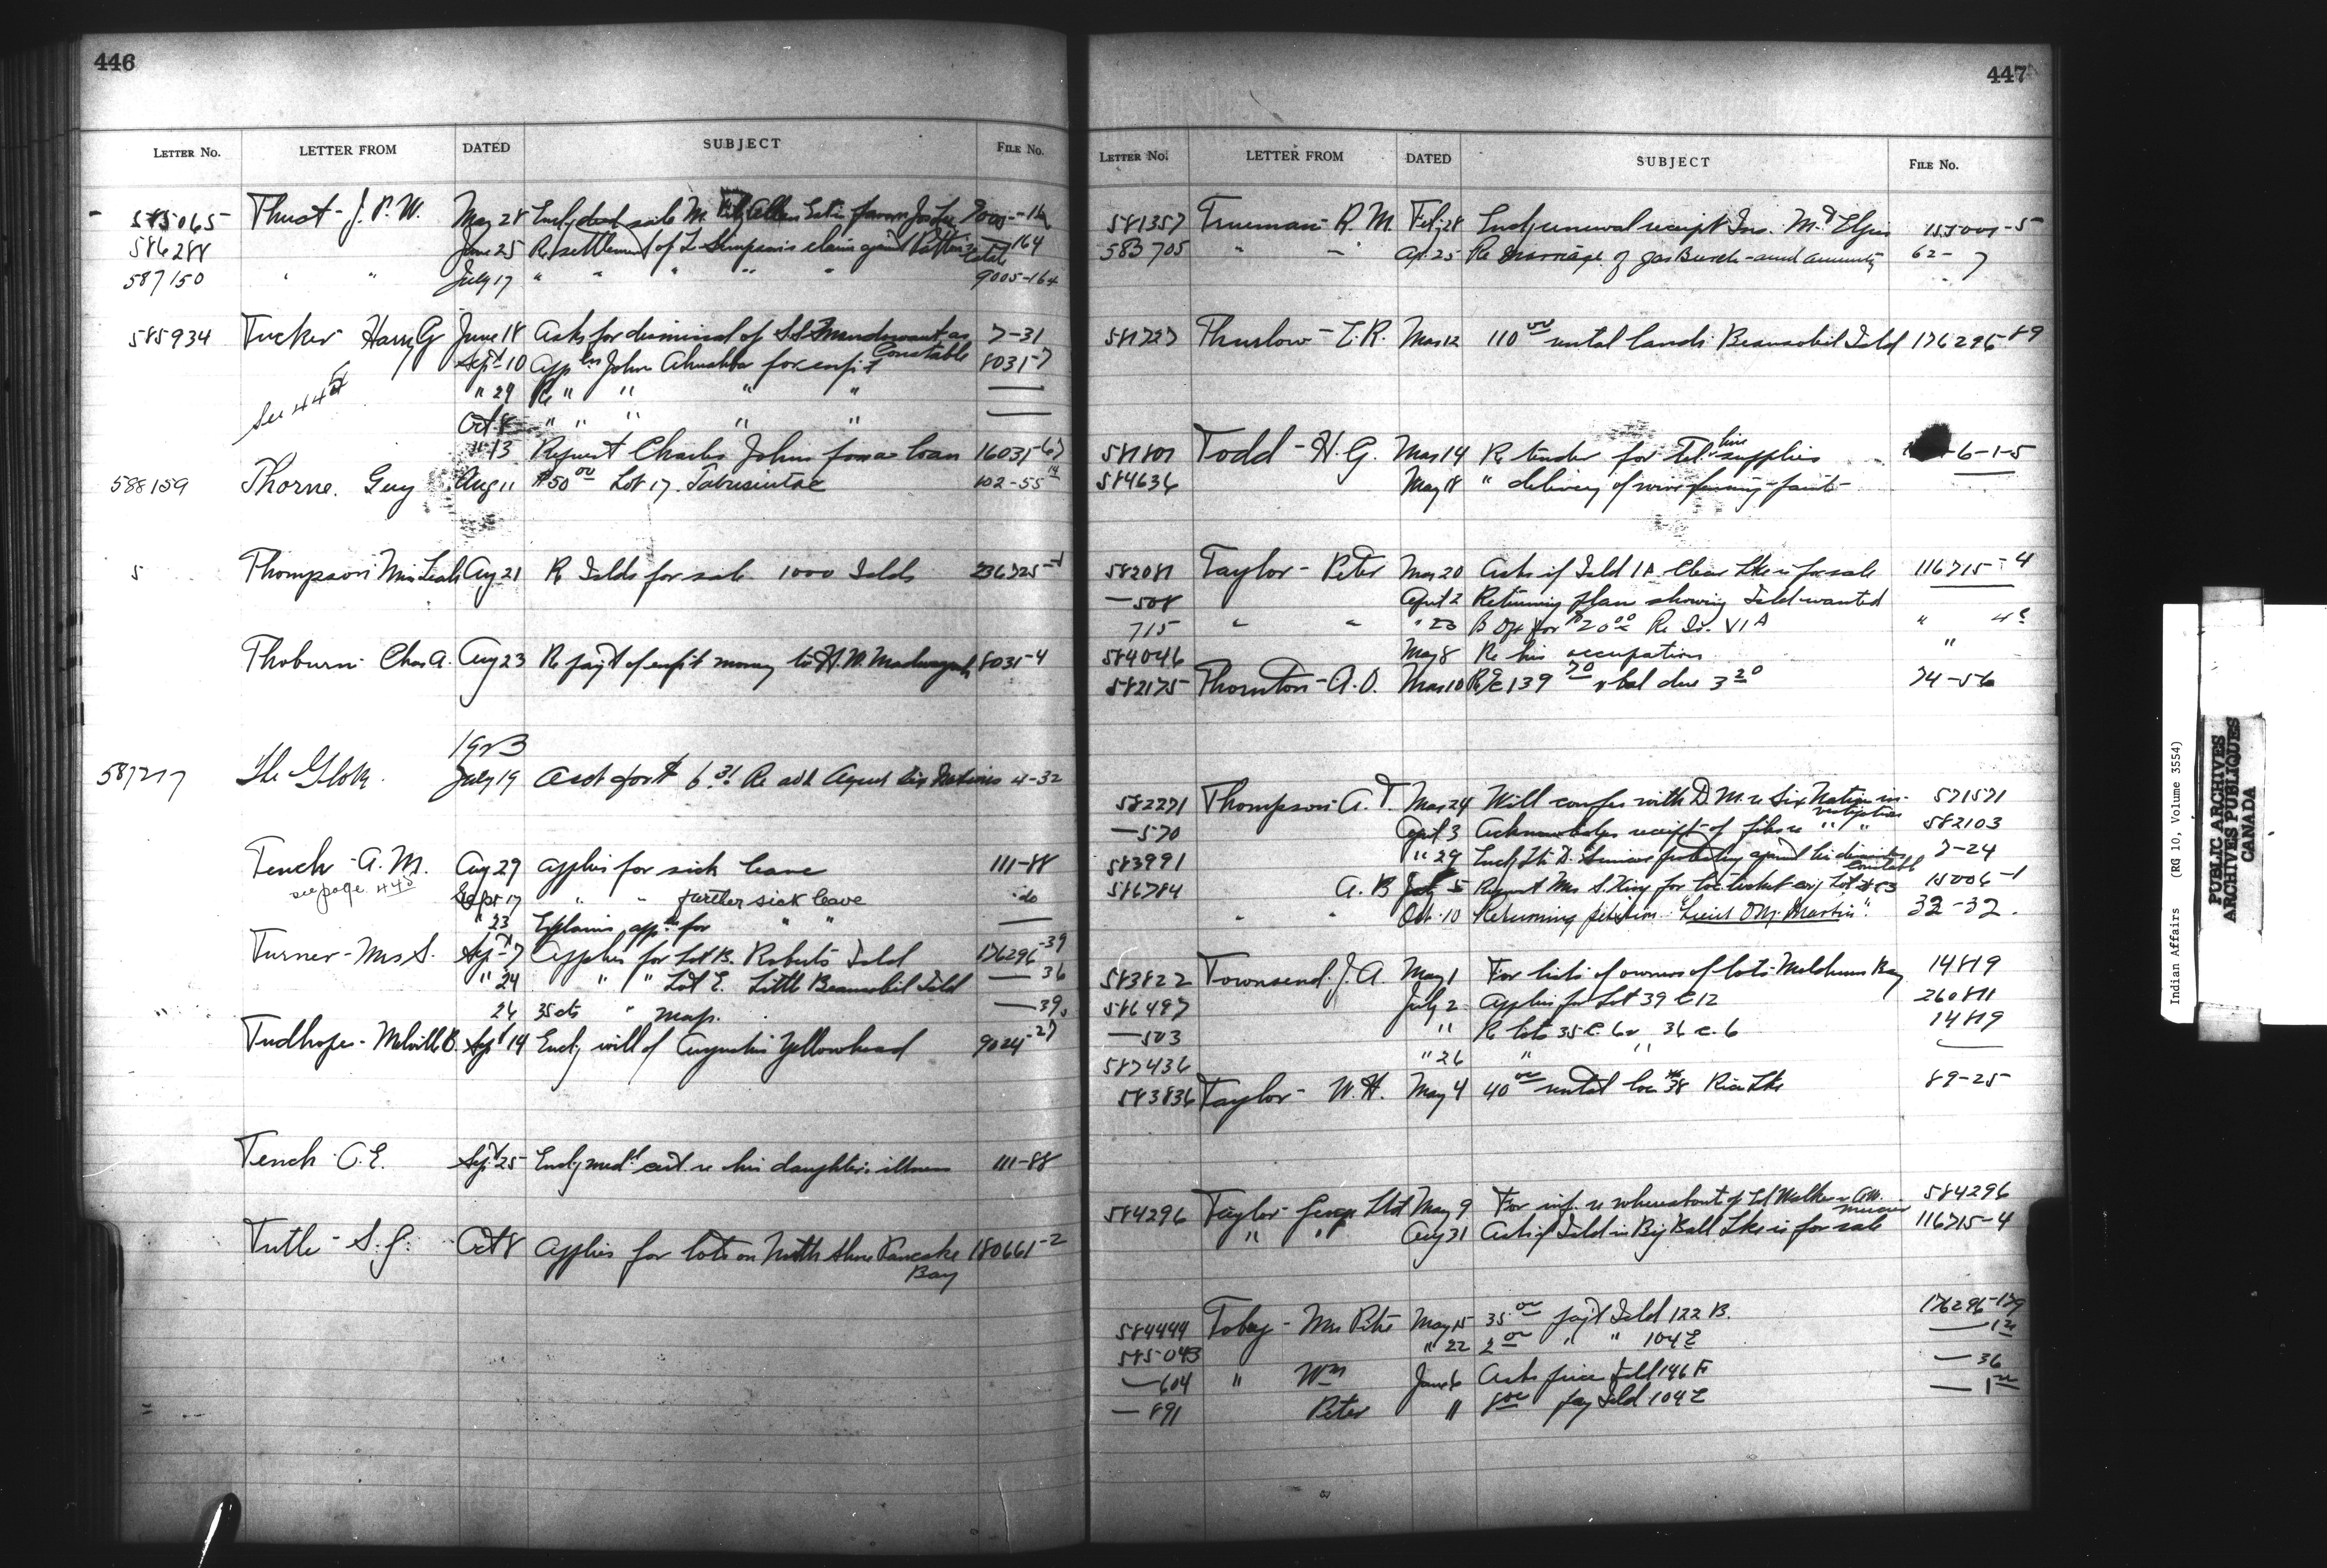 446
LETTER No. LETTER FROM DATED SUBJECT FILE No.
585065 Thust - J. P. W. May 28 Encl deed sale
586288 June 25 Re settlement of L. Simpson's claim against Estate 164
587150 " " July 17 " " " " " 9005-164
585934 Tucker Harry G June 18 Asks for dismissal of as Constable 7-31
Sept 10 John for enfr't 8031-7
" 29 Re " " " "
Oct 8 " " " " "
See 445
" 13 Request Charles John for a loan 16031-67
588159 Thorne. Guy Aug 11 $50 00 Lot 17. Tabusintac 102-55 14
5 Thompson Miss Leah Aug 21 Re Islds for sale 1000 Islds 236725-1
Thoburn Chas A. Aug 23 Re pay't of enfr't money to H. W. 8031-4
1923
587217 The Globe July 19 Acct for $ 6.31 Re adv. Agent Six Nations 4-32
Tench - A. M. Aug 29 applies for sick leave 111-88
see page 445
Sept 17 " " further sick leave do
" 23 Explains app'n for " "
Turner - Mrs S. Sept 7 Applies for Lot B. Roberts Isld 176296-39
" 24 " " Lot E. Little Beausoleil Isld — 36
26 35 cts " map. — 39
Tudhope - Melville B. Sept 14 Encl; will of Augustus Yellowhead 9024-27
Tench C. E. Sept 25 Encl; med'l cert re his daughter's illness 111-88
Tuttle - S. G. Oct 8 Applies for lots on North Shore Pancake Bay 180661-2
447
LETTER No. LETTER FROM DATED SUBJECT FILE No.
581357 Trueman - R. M. Feb. 28 Encl; renewal receipt Ins. Mt Elgin 155001-5
583705 " — Ap. 25 Re marriage of Jas Burch - and annuity 62-7
581727 Thurlow - R. Mar 12 110 00 rental lands Beausoleil Isld 176296-89
581801 Todd - H. G. Mar 14 Re tender for Tel line supplies -6-1-5
584636 May 18 " delivery of wire
582081 Taylor - Peter Mar 20 Asks if Isld 1A Clear Lke is for sale 116715-4
— 508 April 2 Returning plan showing Isld wanted
715 " " " 23 for $20 00 Re Is. VIA " 4
584046 May 8 Re his occupation "
582175 Thornton - A. O. Mar 10 139 70 bal due 3 20 74-56
582271 Thompson - A. T. Mar 24 Will confer with D. M. re Six Nation investigation 571571
— 570 April 3 Acknowledges receipt of files re " " 582103
583991 " 29 Encl; ltr D. protesting against his dismissal Constable 7-24
586784 A. B July 5 Request Mrs S. King for loc. ticket 15006-1
" " Oct. 10 Returning petition "Lieut O. M. Martin". 32-32.
583822 Townsend. J. A. May 1 For lists of owners of lots Meldrum Bay 14819
586497 July 2 Applies for Lot 39 C 12 260811
— 503 " Re lots 35 C. 6 & 36 C. 6 14819
587436 " 26 " "
583836 Taylor - W. H. May 4 40 00 rental loc 38 Rice Lke 89-25
584296 Taylor - George Ltd May 9 For inf. re whereabouts of Walker & A. W. 584296
" " Aug 31 Asks if Isld in Big Bald Lke is for sale 116715-4
584444 Tobey - Mrs Peter May 15 35 00 pay't Isld 122 B. 176296-179
585043 " 22 2 00 " " 104 E
— 604 " Wm June 6 Asks price Isld 146 F — 36
— 891 Peter " 8 00 pay Isld 104 E
Indian Affairs (RG 10, Volume 3554)
PUBLIC ARCHIVES
ARCHIVES PUBLIQUES
CANADA